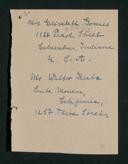 Mrs Elizabeth Gomes
1122 Street
Columbus Indiana
U. S. A.
Mr. Walter
Santa Monica,
California,
1257 Third Street